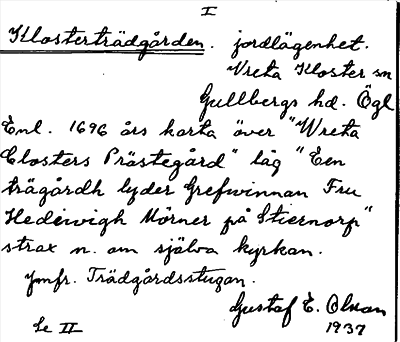 I
Klosterträdgården. jordlägenhet.
Vreta Kloster sn
Gullbergs hd. Ögl
Enl. 1696 års karta över "Wreta
Closters Prästegård" låg "Een
trägårdh lyder Grefwinnan Fru
Hedewigh Mörner på Stiernorp"
strax n. om själva kyrkan.
Jmfr. Trädgårdsstugan.
Gustaf E. Olson
Se II
1937